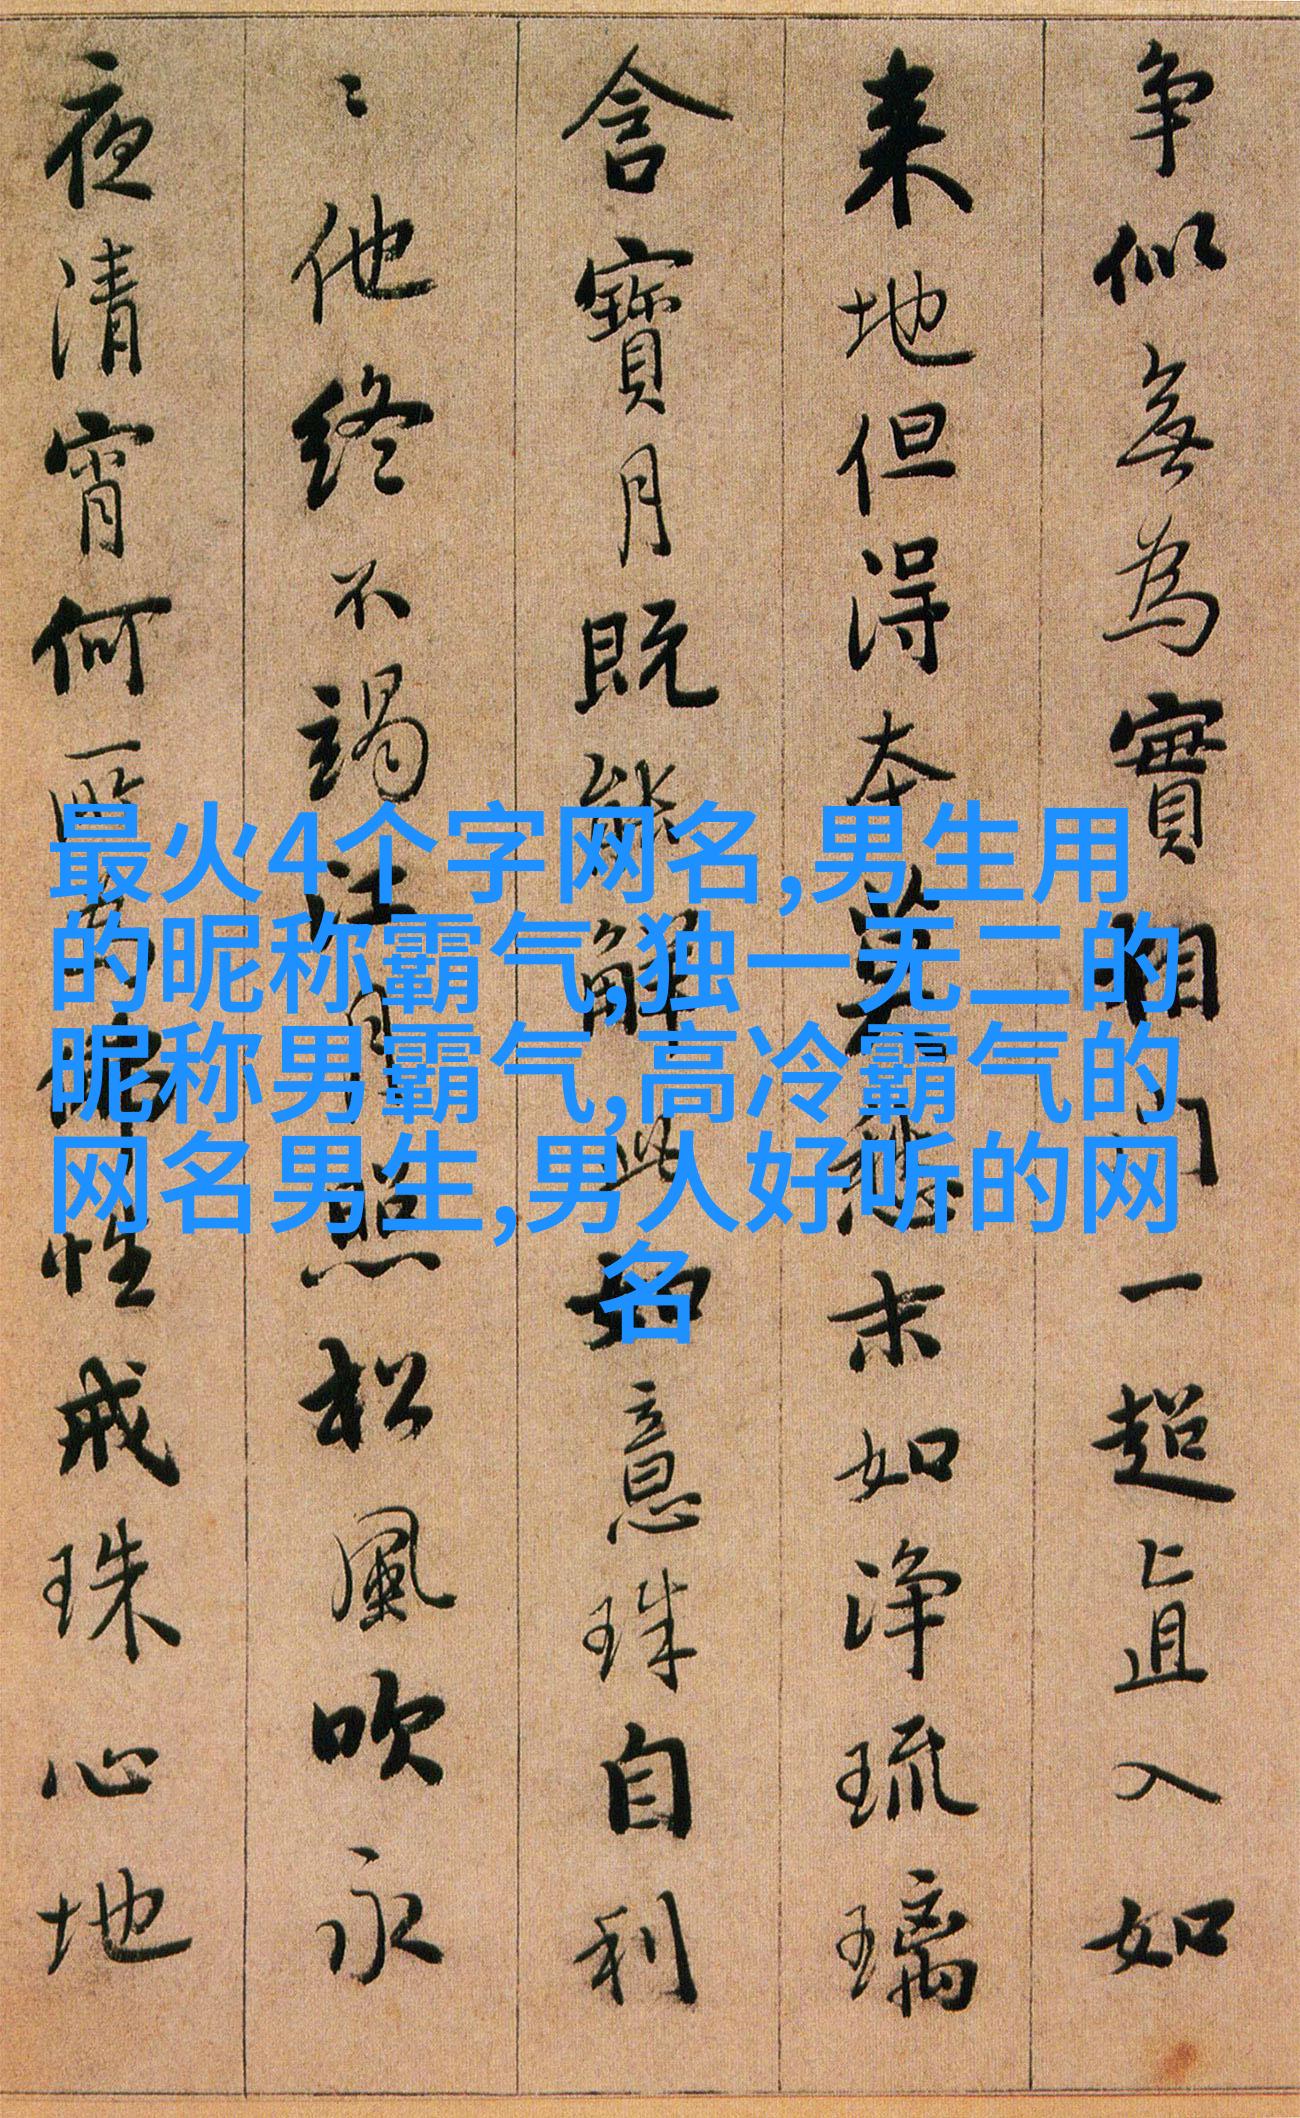 争似無為實相门一超〻直入如
来地但得本莫愁末如净琉璃
含寳月既能解此如意珠自利
〻他终不竭江月照松風吹永
夜清宵何所為佛性戒珠心地
最火4个字网名,男生用
的昵称霸气,独一无二的
昵称男霸气,高冷霸气的
网名男生,男人好听的网
名